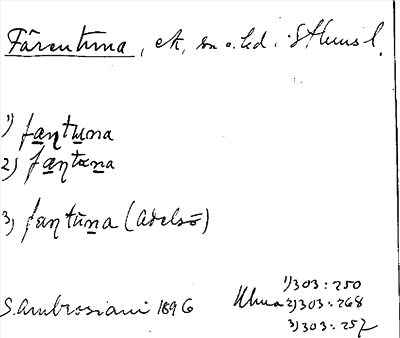 Färentuna, ek, sn o. hd. Sthms l.
1) fantuna
2) fantuna
3) fantūna (Adelsö)
S. Ambrosiani 1896
Uhua 1) 303:250
2) 303:268
3) 303:257